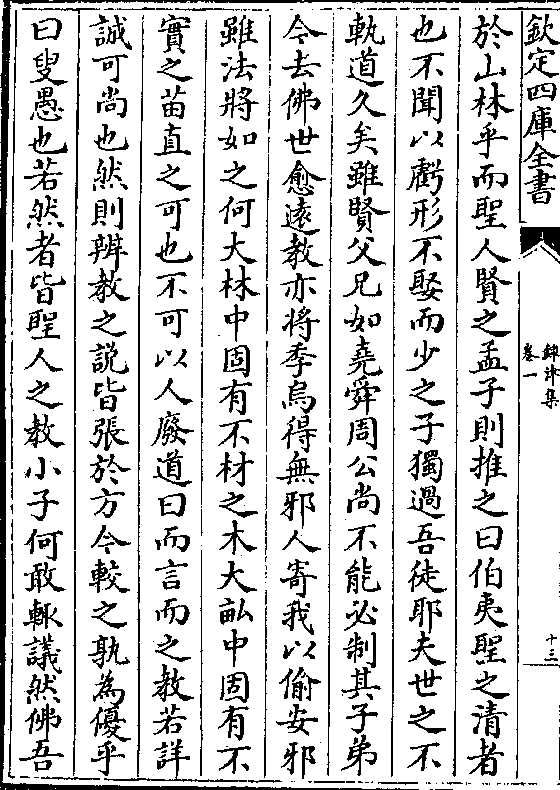 欽定四庫全書
鐔津集
卷一
十三
於山林乎而聖人賢之孟子則推之曰伯夷聖之清者
也不聞以虧形不娶而少之子獨過吾徒耶夫世之不
軌道久矣雖賢父兄如堯舜周公尚不能必制其子弟
今去佛世愈遠教亦將季烏得無邪人寄我以偷安邪
雖法將如之何大林中固有不材之木大畝中固有不
實之苗直之可也不可以人廢道曰而言而之教若詳
誠可尚也然則辨教之説皆張於方今較之孰為優乎
曰叟愚也若然者皆聖人之教小子何敢輒議然佛吾